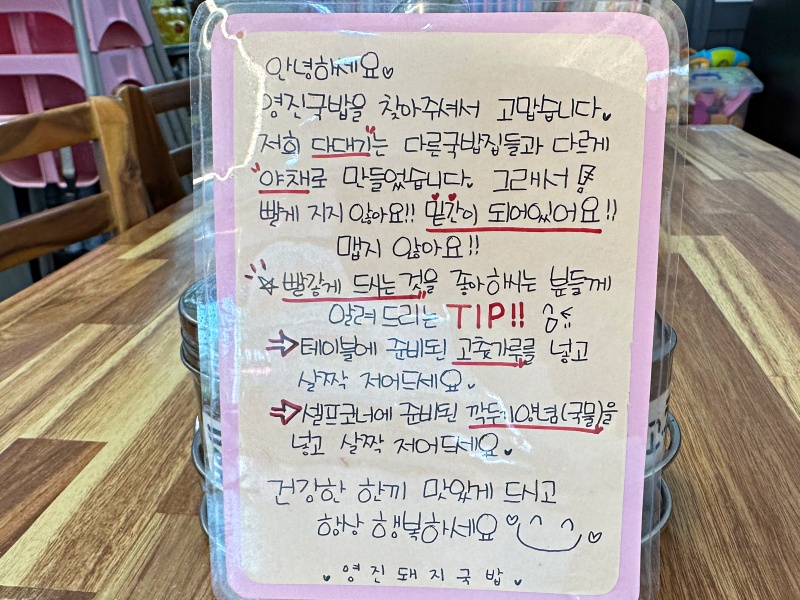 안녕하세요
영진국밥을 찾아주셔서 고맙습니다.
저희 다대기는 다른국밥집들과 다르게
야채로 만들었습니다. 그래서
빨갛게 지지 않아요!! 밑간이 되어있어요!!
맵지 않아요!!
빨갛게 드시는 것을 좋아하시는 분들께
알려드리는 TIP!!
⇒테이블에 준비된 고춧가루를 넣고
살짝 저어드세요.
⇒셀프코너에 준비된 깍두기양념(국물)을
넣고 살짝 저어드세요.
건강한 한끼 맛있게 드시고
항상 행복하세요
영진돼지국밥